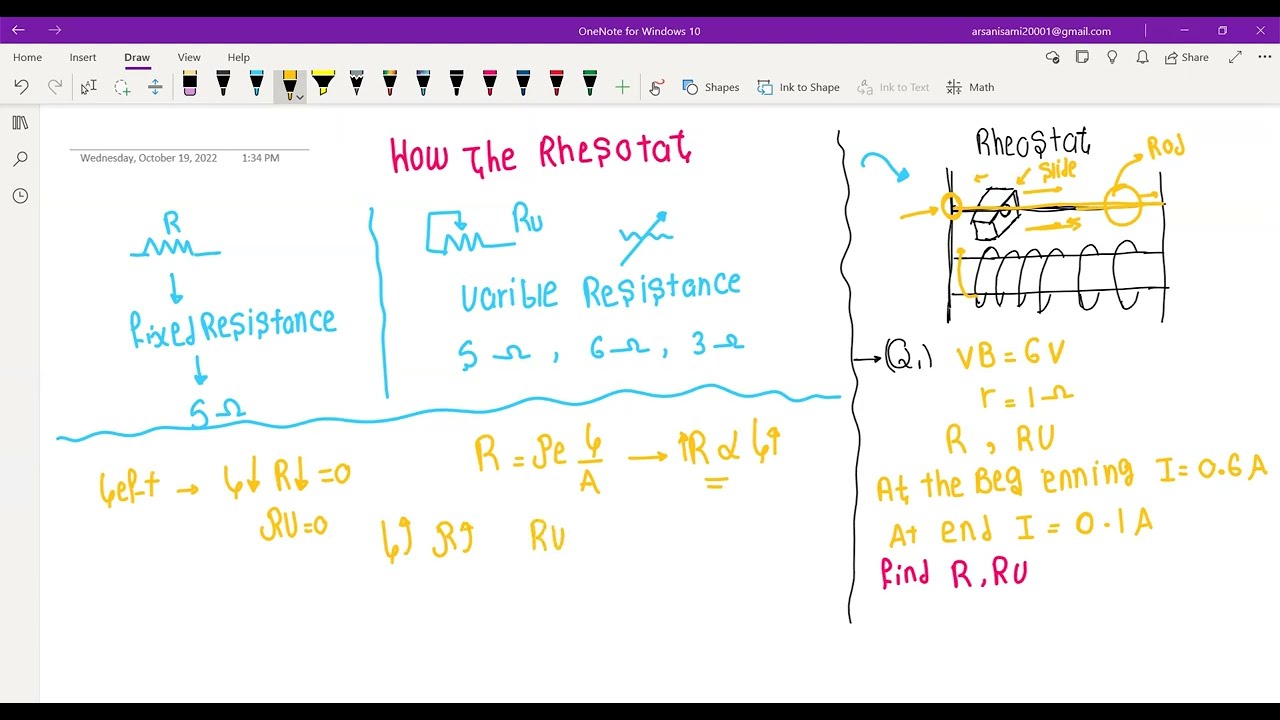 OneNote for Windows 10
arsanisami20001@gmail.com
Home Insert Draw View Help
Share
Shapes Ink to Shape Ink to Text Math
Wednesday, October 19, 2022 1:34 PM
How the Rhesotat
R
Fixed Resistance
5 Ω
Rv
Varible Resistance
5 Ω , 6 Ω , 3 Ω
R = ρe L/A → ↑R ∝ L↑
Left → L↓ R↓ = 0
Rv = 0
L↑ R↑ Rv
Rheostat
Rod
Slide
→ (Q1) VB = 6 V
r = 1 Ω
R , RV
At the Beg enning I = 0.6 A
At end I = 0.1 A
Find R , RV